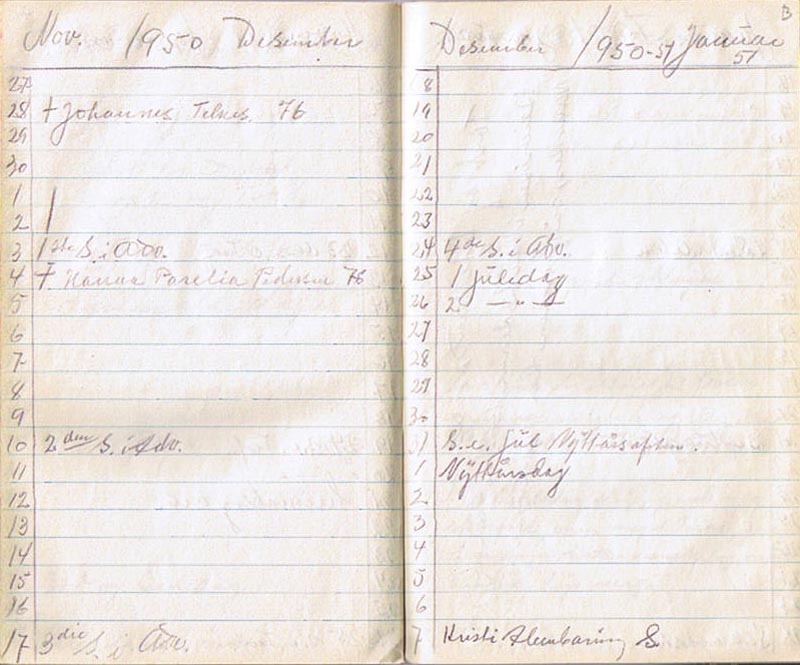 Nov. 1950 Desember
27
28 † Johannes Telnes. 76
29
30
1
2
3 1ste S. i Adv.
4 † Hanna Pedersen 76
5
6
7
8
9
10 2den S. i Adv.
11
12
13
14
15
16
17 3die S. i Adv.
B
Desember 1950-51 Januar
51
18
19
20
21
22
23
24 4de S. i Adv.
25 1 Juledag
26 2 — " —
27
28
29
30
31 S. e. Jul Nyttårsaften.
1 Nyttårsdag
2
3
4
5
6
7 Kristi Åbenbaring S.